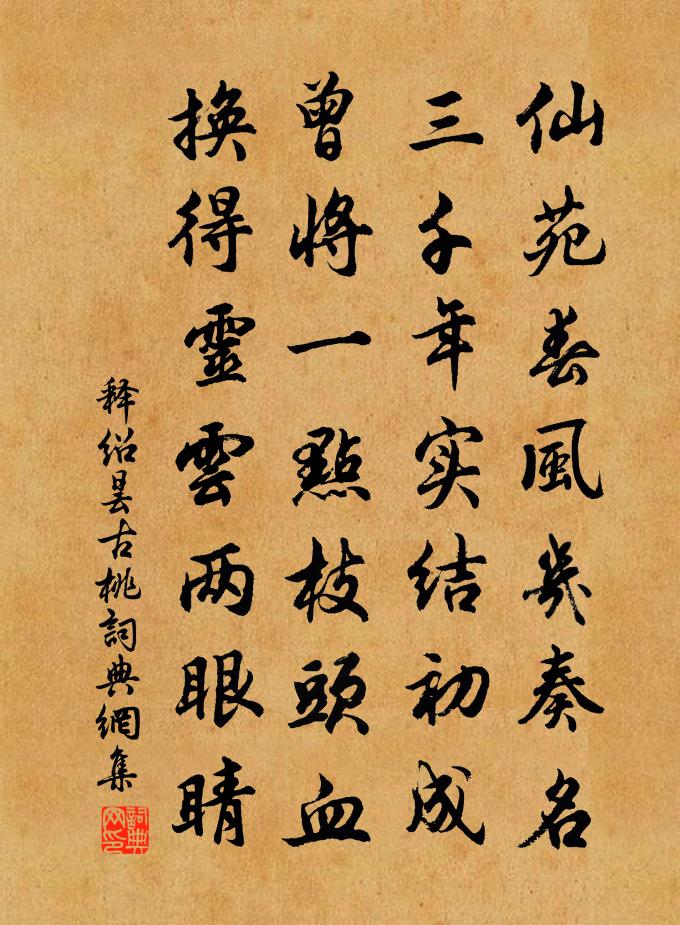 仙苑春風幾奏名
三千年实结初成
曾将一點枝頭血
换得靈雲两眼睛
释绍昙古桃詞典網集
詞典网印